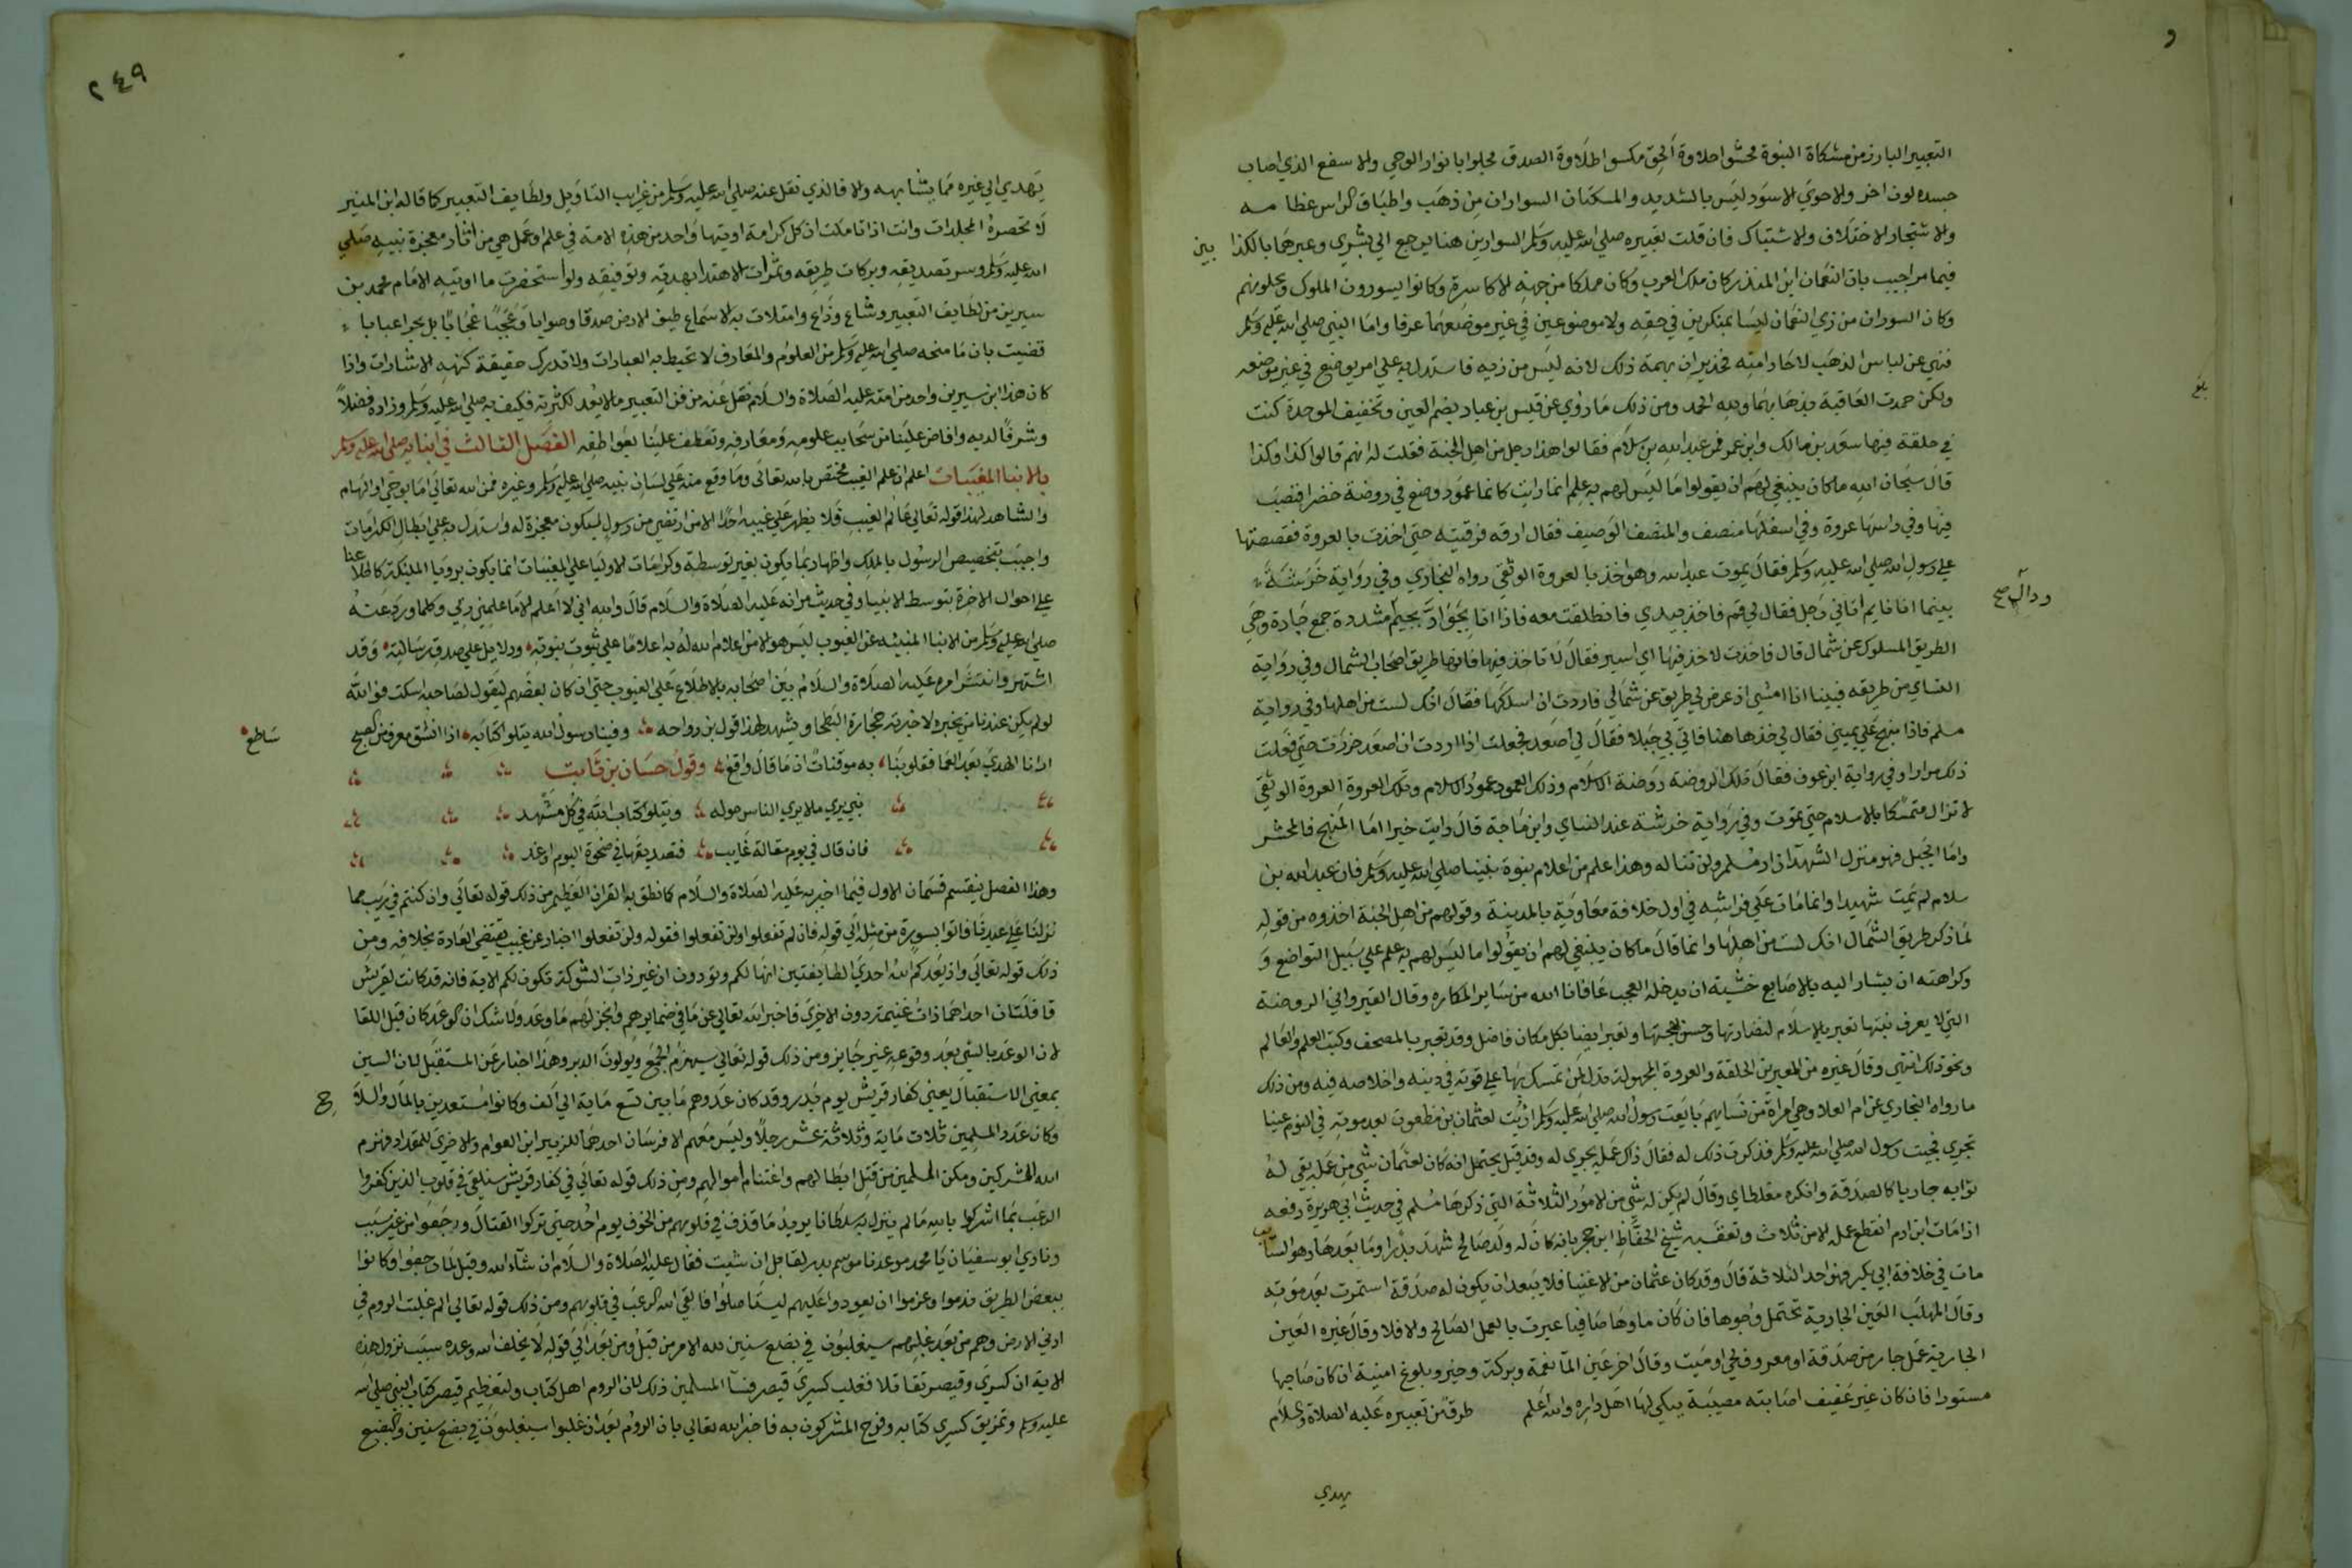 و
التعبير البارز من مشكاة النبوة محشوا حلاوة الحق مكسوا طلاوة الصدق مجلوا بانوار الوحي والاسفع الذي اصاب
جسده لون اخر والاحوي الاسود ليس بالشديد والمسكتان السواران من ذهب واطباق الراس عظامه
والاشتجار الاختلاف والاشتباك فان قلت تعبيره صلي الله عليه وسلم السوارين هنا يرجع الي بشري وعبرهما بالكذابين
فيما مر اجيب بان النعمان ابن المنذر كان ملك العرب وكان مملكا من جهة الاكاسرة وكانوا يسورون الملوك ويحلونهم
وكان السوران من زي النعمان ليسا بمنكرين في حقه ولا موضوعين في غير موضعهما عرفا واما النبي صلي الله عليه وسلم
فنهي عن لباس الذهب لاحاد امته فجدير ان يهمه ذلك لانه ليس من زيه فاستدل به علي امر يوضع في غير موضعه
ولكن حمدت العاقبة بذهابهما ولله الحمد ومن ذلك ما روي عن قيس بن عباد بضم العين وتخفيف الموحدة كنت
بلغ
في حلقة فيها سعد بن مالك وابن عمر فمر عبد الله بن سلام فقالوا هذا رجل من اهل الجنة فقلت له انهم قالوا كذا وكذا
قال سبحان الله ما كان ينبغي لهم ان يقولوا ما ليس لهم به علم انما رايت كانما عمود وضع في روضة خضرا فنصب
فيها وفي راسها عروة وفي اسفلها منصف والمنصف الوصيف فقال ارقه فرقيته حتي اخذت بالعروة فقصصتها
علي رسول الله صلي الله عليه وسلم فقال يموت عبد الله وهو اخذ بالعروة الوثقي رواه البخاري وفي رواية خرشة
ودال صح
بينما انا نايم اتاني رجل فقال لي قم فاخذ بيدي فانطلقت معه فاذا انا بجواد بجيم مشددة جمع جادة وهي
الطريق المسلوك عن شمال قال فاخذت لاخذ فيها اي اسير فقال لا تاخذ فيها فانها طريق اصحاب الشمال وفي رواية
النساي من طريقه فبينا انا امشي اذ عرض لي طريق عن شمالي فاردت ان اسلكها فقال انك لست من اهلها وفي رواية
مسلم فاذا منهج علي يميني فقال لي خذها هنا فاتي بي جبلا فقال لي اصعد فجعلت اذا اردت ان اصعد خررت حتي فعلت
ذلك مرارا وفي رواية ابن عوف فقال تلك الروضة روضة الاسلام وذلك العمود عمود الاسلام وتلك العروة العروة الوثقي
لا تزال متمسكا بالاسلام حتي تموت وفي رواية خرشة عند النساي وابن ماجة قال رايت خيرا اما المنهج فالمحشر
واما الجبل فهو منزل الشهدا زاد مسلم ولن تناله وهذا علم من اعلام نبوة نبينا صلي الله عليه وسلم فان عبد الله بن
سلام لم يمت شهيدا وانما مات علي فراشه في اول خلافة معاوية بالمدينة وقولهم من اهل الجنة اخذوه من قوله
لما ذكر طريق الشمال انك لست من اهلها وانما قال ما كان ينبغي لهم ان يقولوا ما ليس لهم به علم علي سبيل التواضع و
وكراهته ان يشار اليه بالاصابع خشية ان يدخله العجب عافانا الله من ساير المكاره وقال القيرواني الروضة
التي لا يعرف نبتها تعبر بالاسلام لنضارتها وحسن بهجتها وتعبر ايضا بكل مكان فاضل وقد تعبر بالمصحف وكتب العلم والعالم
ونحو ذلك انتهي وقال غيره من المعبرين الحلقة والعروة المجهولة تدل لمن تمسك بها علي قوته في دينه واخلاصه فيه ومن ذلك
ما رواه البخاري عن ام العلا وهي امراة من نسايهم بايعت رسول الله صلي الله عليه وسلم اريت لعثمان بن مظعون بعد موته في النوم عينا
تجري فجيت رسول الله صلي الله عليه وسلم فذكرت ذلك له فقال ذاك عمله يجري له وقد قيل يحتمل انه كان لعثمان شي من عمله بقي له
ثوابه جاريا كالصدقة وانكره مغلطاي وقال لم يكن له شي من الامور الثلاثة التي ذكرها مسلم في حديث ابي هريرة رفعه
اذا مات ابن ادم انقطع عمله الا من ثلاث وتعقبه شيخ الحفاظ ابن حجر بانه كان له ولد صالح شهد بدرا وما بعدها وهو السايب
مات في خلافة ابي بكر فهو احد الثلاثة قال وقد كان عثمان من الاغنيا فلا يبعد ان يكون له صدقة استمرت بعد موته
وقال المهلب العين الجارية تحتمل وجوها فان كان ماوها صافيا عبرت بالعمل الصالح والا فلا وقال غيره العين
الجارية عمل جار من صدقة او معروف لحي او ميت وقال اخر عين الما نعمة وبركة وخير وبلوغ امنية ان كان صاحبها
مستورا فان كان غير عفيف اصابته مصيبة يبكي لها اهل داره والله اعلم طرق من تعبيره عليه الصلاة والسلام
يهدي
٢٤٩
يهدي الي غيره مما يشابهه والا فالذي نقل عنه صلي الله عليه وسلم من غرايب التاويل ولطايف التعبير كما قاله ابن المنير
لا تحصره المجلدات وانت اذا تاملت ان كل كرامة اوتيها واحد من هذه الامة في علم او عمل هي من اثار معجزة نبيه صلي
الله عليه وسلم وسر تصديقه وبركات طريقه وثمرات الاهتدا بهديه وتوفيقه ولو استحضرت ما اوتيه الامام محمد بن
سيرين من لطايف التعبير وشاع وذاع وامتلات به الاسماع طبق الارض صدقا وصوابا وعجبا عجابا بل بحرا عبابا
قضيت بان ما منحه صلي الله عليه وسلم من العلوم والمعارف لا تحيط به العبارات ولا تدرك حقيقة كنهه الاشارات واذا
كان هذا ابن سيرين واحد من امته عليه الصلاة والسلام نقل عنه من فن التعبير ما لا يعد لكثرته فكيف به صلي الله عليه وسلم وزاده فضلا
وشرفا لديه وافاض علينا من سحايب علومه ومعارفه وتعطف علينا بعواطفه الفصل الثالث في انبايه صلي الله عليه وسلم
بالانبا المغيبات اعلم ان علم الغيب مختص بالله تعالي وما وقع منه علي لسان نبيه صلي الله عليه وسلم وغيره فمن الله تعالي اما بوحي او الهام
والشاهد لهذا قوله تعالي عالم الغيب فلا يظهر علي غيبه احدا الا من ارتضي من رسول ليكون معجزة له واستدل به علي ابطال الكرامات
واجيب بتخصيص الرسول بالملك واظهار بما يكون بغير توسطه وكرامات الاوليا علي المغيبات انما يكون برويا الملايكة كاطلاعنا
علي احوال الاخرة بتوسط الانبيا وفي حديث مر انه عليه الصلاة والسلام قال والله اني لا اعلم الا ما علمني ربي وكلما ورد عنه
صلي الله عليه وسلم من الانبا المنبيه عن الغيوب ليس هو الا من اعلام الله له به اعلاما علي ثبوت نبوته ودلايل علي صدق رسالته وقد
اشتهر وانتشر امره عليه الصلاة والسلام بين اصحابه بالاطلاع علي الغيوب حتي ان كان بعضهم ليقول لصاحبه اسكت فوالله
لو لم يكن عندنا من يخبره لاخبرته حجارة البطحا ويشهد لهذا قول بن رواحه وفينا رسول الله يتلو كتابه اذا انشق معروف من الصبح
ساطع
ارانا الهدي بعد العما فقلوبنا به موقنات ان ما قال واقع وقول حسان بن ثابت
نبي يري ما لا يري الناس حوله ويتلو كتاب الله في كل مشهد
فان قال في يوم مقالة غايب فتصديقها في ضحوة اليوم او غد
وهذا الفصل ينقسم قسمان الاول فيما اخبر به عليه الصلاة والسلام كما نطق به القران العظيم من ذلك قوله تعالي وان كنتم في ريب مما
نزلنا علي عبدنا فاتوا بسورة من مثله الي قوله فان لم تفعلوا ولن تفعلوا فقوله ولن تفعلوا اخبار عن غيب تقتضي العادة بخلافه ومن
ذلك قوله تعالي واذ يعدكم الله احدي الطايفتين انها لكم وتودون ان غير ذات الشوكة تكون لكم الاية فانه قد كانت لقريش
قافلتان احداهما ذات غنيمة دون الاخري فاخبر الله تعالي عن ما في ضمايرهم وانجز لهم ما وعد ولا شك ان الوعد كان قبل اللقا
لان الوعد بالشي بعد وقوعه غير جايز ومن ذلك قوله تعالي سيهزم الجمع ويولون الدبر وهذا اخبار عن المستقبل لان السين
بمعني الاستقبال يعني كفار قريش يوم بدر وقد كان عددهم ما بين تسع ماية الي الف وكانوا مستعدين بالمال والسلا
ح
وكان عدد المسلمين ثلاث ماية وثلاثة عشر رجلا وليس معهم الا فرسان احدهما للزبير ابن العوام والاخري للمقداد فهزم
الله المشركين ومكن المسلمين من قتل ابطالهم واغتنام اموالهم ومن ذلك قوله تعالي في كفار قريش سنلقي في قلوب الذين كفروا
الرعب بما اشركوا بالله ما لم ينزل به سلطانا يريد ما قذف في قلوبهم من الخوف يوم احد حتي تركوا القتال ورجعوا من غير سبب
ونادي ابو سفيان يا محمد موعدنا موسم بدر لقابل ان شيت فقال عليه الصلاة والسلام ان شآء الله وقيل لما رجعوا وكانوا
ببعض الطريق ندموا وعزموا ان يعودوا عليهم ليستاصلوا فالقي الله الرعب في قلوبهم ومن ذلك قوله تعالي الم غلبت الروم في
ادني الارض وهم من بعد غلبهم سيغلبون في بضع سنين لله الامر من قبل ومن بعد الي قوله لا يخلف الله وعده سبب نزول هذه
الاية ان كسري وقيصر تقاتلا فغلب كسري قيصر فسآ المسلمين ذلك لان الروم اهل كتاب ولتعظيم قيصر كتاب النبي صلي الله
عليه وسلم وتمزيق كسري كتابه وفرح المشركون به فاخبر الله تعالي بان الروم بعد ان غلبوا سيغلبون في بضع سنين والبضع